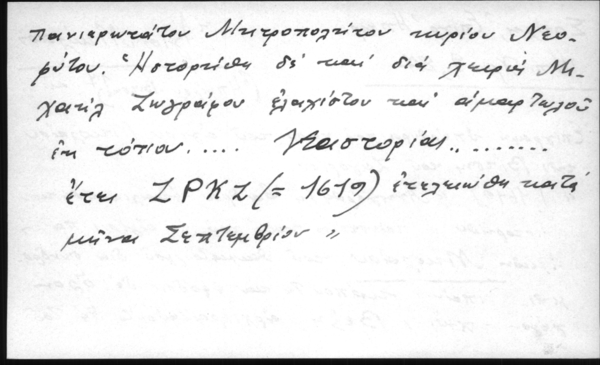 πανιερωτάτου Μητροπολίτου κυρίου Νεο-
φύτου. Ἡστορίθη δέ καί διά χειρός Μι-
χαήλ Ζωγράφου ἐλαχίστου καί ἁμαρτωλοῦ
ἐκ τόπου ..... Καστορίας .........
ἔτει ΖΡΚΖ (= 1619) ἐτελειώθη κατά
μῆνα Σεπτεμβρίου "